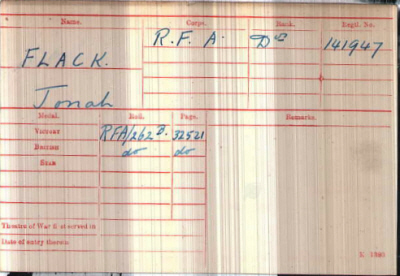 Name. Corps. Rank. Regtl. No.
FLACK. R.F.A. Dvr 141947
Jonah
Medal. Roll. Page. Remarks.
VICTORY RFA/262B. 32521
BRITISH do do
STAR
Theatre of War first served in
Date of entry therein